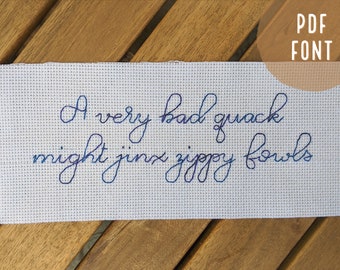 PDF
FONT
A very bad quack
might jinx zippy fowls